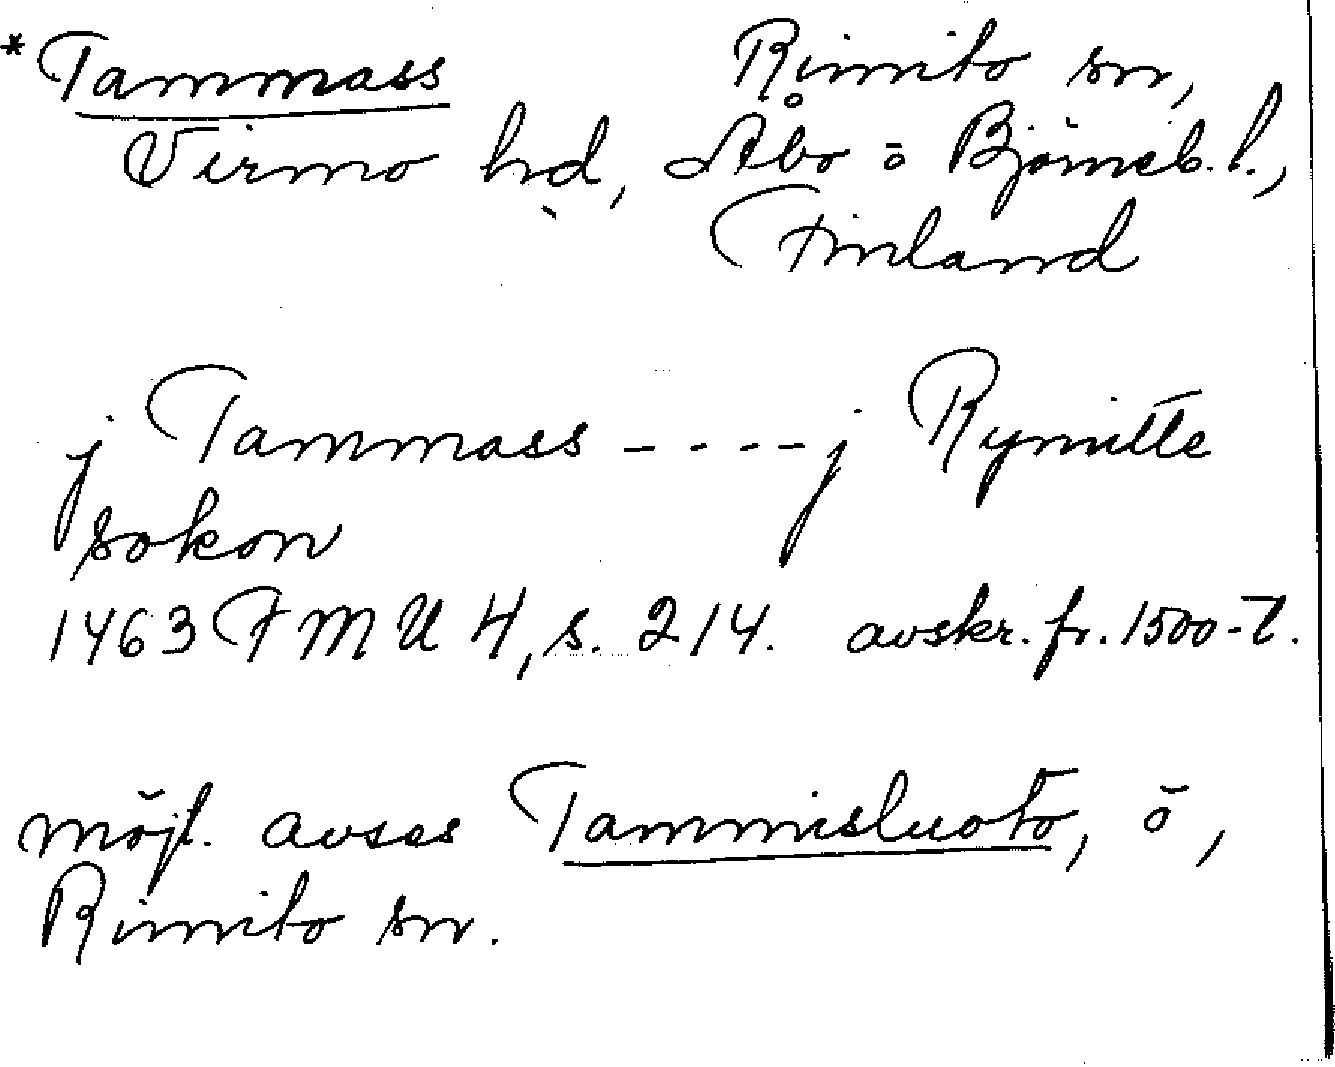 *Tammass Rimito sn,
Virmo hd, Åbo o Björneb. l.,
Finland
j Tammass - - - - j Rymitte
sokon
1463 FMU 4, s. 214. avskr. fr. 1500-t.
möjl. avses Tammisluoto, ö,
Rimito sn.